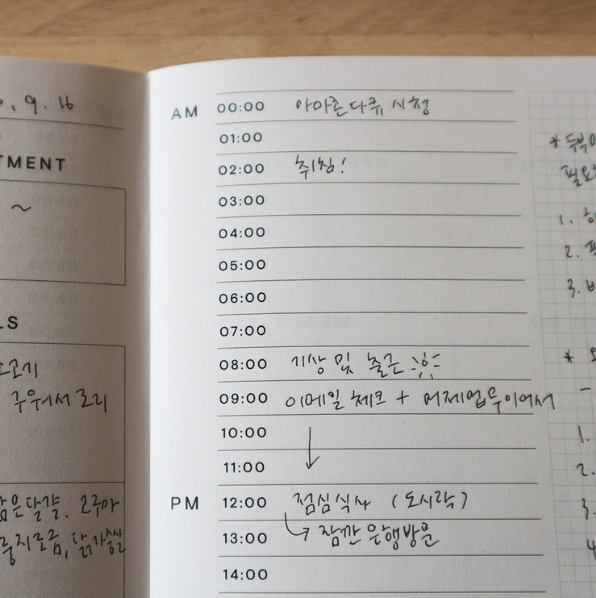 . 9. 16
TMENT
~
LS
소고기
구워서 로리
삶은달걀. 오이
닭가슴살
AM
00:00 아마존 다큐 시청
01:00
02:00 취침!
03:00
04:00
05:00
06:00
07:00
08:00 기상 및 출근
09:00 이메일 체크 + 어제업무이어서
10:00
11:00
PM
12:00 점심식사 (도시락)
13:00 → 잠깐 은행방문
14:00
* 두부
필요
1.
2.
3.
*
-
1.
2.
3.
4